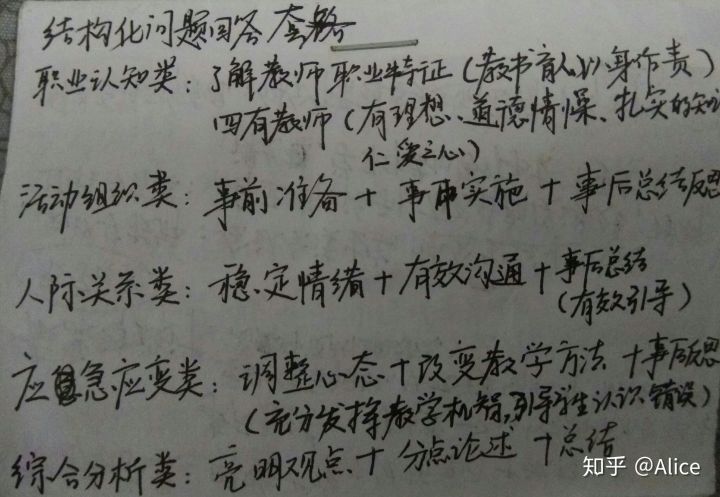 结构化问题回答套路
职业认知类：了解教师职业特征（教书育人以身作责）
四有教师（有理想、道德情操、扎实的知识
仁爱之心）
活动组织类：事前准备＋事中实施＋事后总结反思
人际关系类：稳定情绪＋有效沟通＋事后总结
（有效引导）
应急应变类：调整心态＋改变教学方法＋事后反思
（充分发挥教学机智，引导学生认识错误）
综合分析类：亮明观点＋分点论述＋总结
知乎 @Alice